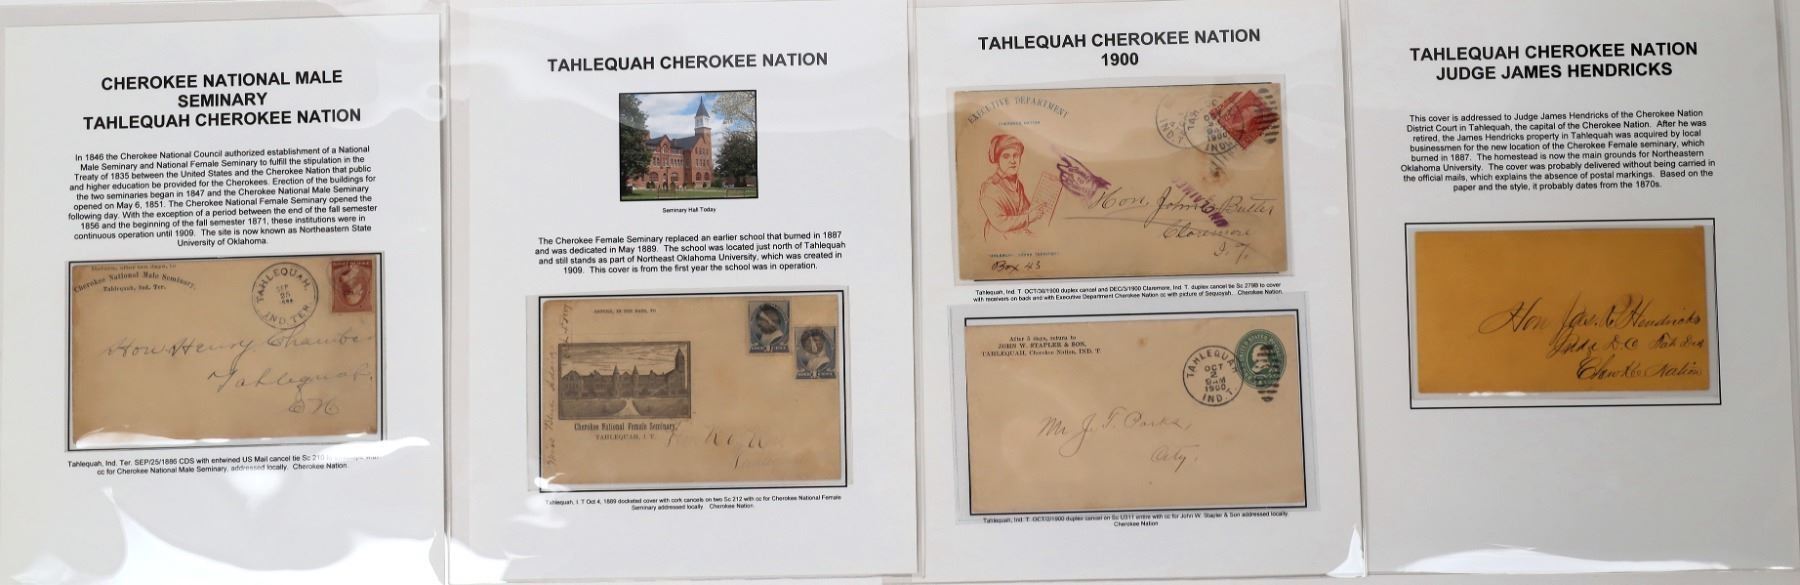 CHEROKEE NATIONAL MALE
SEMINARY
TAHLEQUAH CHEROKEE NATION
In 1846 the Cherokee National Council authorized establishment of a National
Male Seminary and National Female Seminary to fulfill the stipulation in the
Treaty of 1835 between the United States and the Cherokee Nation that public
and higher education be provided for the Cherokees. Erection of the buildings for
the two seminaries began in 1847 and the Cherokee National Male Seminary
opened on May 6, 1851. The Cherokee National Female Seminary opened the
following day. With the exception of a period between the end of the fall semester
1856 and the beginning of the fall semester 1871, these institutions were in
continuous operation until 1909. The site is now known as Northeastern State
University of Oklahoma.
Return, after ten days, to
Cherokee National Male Seminary,
Tahlequah, Ind. Ter.
TAHLEQUAH,
SEP
25
IND. TER.
Hon Henry Chambers
Tahlequah.
C N
Tahlequah, Ind. Ter. SEP/25/1886 CDS with entwined US Mail cancel tie Sc 210 to with
cc for Cherokee National Male Seminary, addressed locally. Cherokee Nation.
TAHLEQUAH CHEROKEE NATION
Seminary Hall Today
The Cherokee Female Seminary replaced an earlier school that burned in 1887
and was dedicated in May 1889. The school was located just north of Tahlequah
and still stands as part of Northeast Oklahoma University, which was created in
1909. This cover is from the first year the school was in operation.
RETURN, IN TEN DAYS, TO
Cherokee National Female Seminary,
TAHLEQUAH, I. T.
Tahlequah, I. T Oct 4, 1889 docketed cover with cork cancels on two Sc 212 with cc for Cherokee National Female
Seminary addressed locally. Cherokee Nation.
TAHLEQUAH CHEROKEE NATION
1900
EXECUTIVE DEPARTMENT
CHEROKEE NATION
TAH
IND.
1900
Hon John E Butler
Claremore
I. T.
Box 43
Tahlequah, Ind. T. OCT/30/1900 duplex cancel and DEC/3/1900 Claremore, Ind. T. duplex cancel tie Sc 279B to cover
with receivers on back and with Executive Department Cherokee Nation cc with picture of Sequoyah. Cherokee Nation.
After 5 days, return to
JOHN W. STAPLER & SON,
TAHLEQUAH, Cherokee Nation, IND. T.
TAHLEQUAH
OCT
2
9 AM
1900
IND. T.
Mr J. T. Parks,
City.
Tahlequah, Ind. T. OCT/2/1900 duplex cancel on Sc U311 entire with cc for John W. Stapler & Son addressed locally.
Cherokee Nation
TAHLEQUAH CHEROKEE NATION
JUDGE JAMES HENDRICKS
This cover is addressed to Judge James Hendricks of the Cherokee Nation
District Court in Tahlequah, the capital of the Cherokee Nation. After he was
retired, the James Hendricks property in Tahlequah was acquired by local
businessmen for the new location of the Cherokee Female seminary, which
burned in 1887. The homestead is now the main grounds for Northeastern
Oklahoma University. The cover was probably delivered without being carried in
the official mails, which explains the absence of postal markings. Based on the
paper and the style, it probably dates from the 1870s.
Hon Jas. R Hendricks
Cherokee Nation